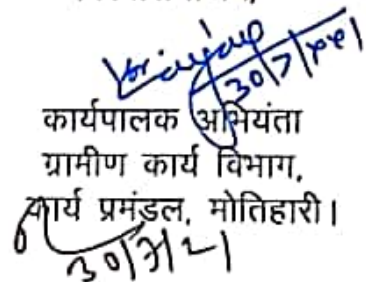 30/7/21
कार्यपालक अभियंता
ग्रामीण कार्य विभाग,
कार्य प्रमंडल, मोतिहारी।
30/7/21